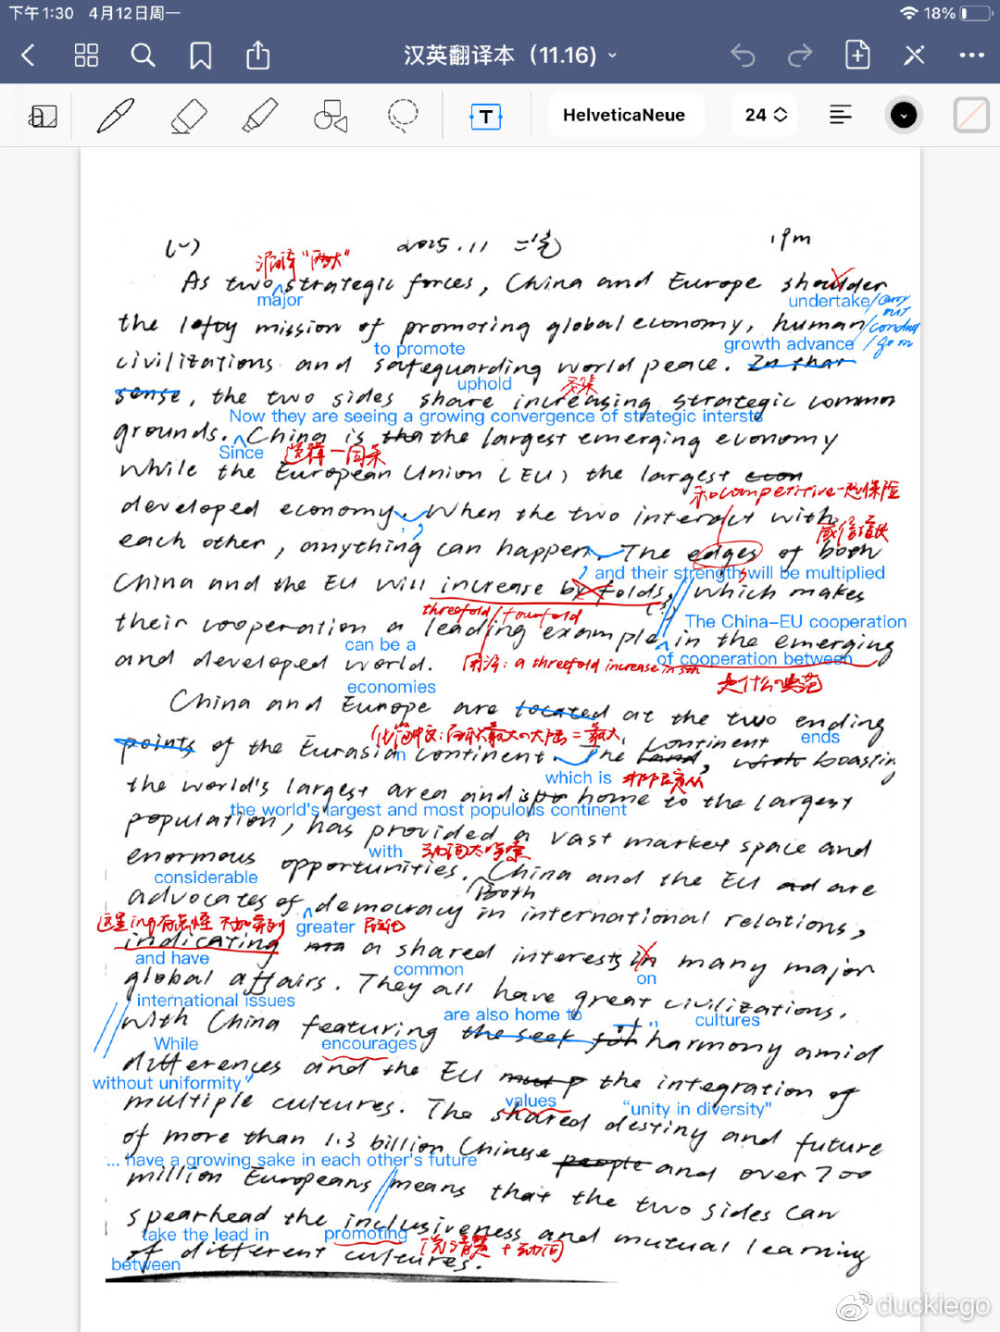 下午1:30 4月12日周一
18%
汉英翻译本（11.16）
T
HelveticaNeue
24
(一)
2015.11 二笔
19m
漏译“两大”
As two strategic forces, China and Europe shoulder
major
undertake/carry out
the lofty mission of promoting global economy, human
/conduct
to promote
growth advance
civilizations and safeguarding world peace. In that
uphold
sense, the two sides share increasing strategic common
Now they are seeing a growing convergence of strategic intersts
grounds. China is the the largest emerging economy
Since
While the European Union (EU) the largest econ
和competitive一起保险
developed economy. When the two interact with
each other, anything can happen. The edges of both
and their strengths will be multiplied
China and the EU will increase by folds, which makes
threefold/fourfold
The China-EU cooperation
their cooperation a leading example in the emerging
can be a
用法: a threefold increase in sth
of cooperation between
and developed world.
是什么的典范
economies
China and Europe are located at the two ending
ends
points of the Eurasian continent. The land, with boasting
continent
which is
the world's largest area and home to the largest
the world's largest and most populous continent
population, has provided a vast market space and
with
enormous opportunities. China and the EU ad are
considerable
Both
advocates of democracy in international relations,
greater
indicating a shared interests in many major
and have
common
on
global affairs. They all have great civilizations.
international issues
are also home to
cultures
With China featuring the seek for harmony amid
While
encourages
differences and the EU the integration of
without uniformity"
values
"unity in diversity"
multiple cultures. The shared destiny and future
of more than 1.3 billion Chinese people and over 700
... have a growing sake in each other's future
million Europeans means that the two sides can
spearhead the inclusiveness and mutual learning
take the lead in
promoting
of different cultures.
between
duckiego